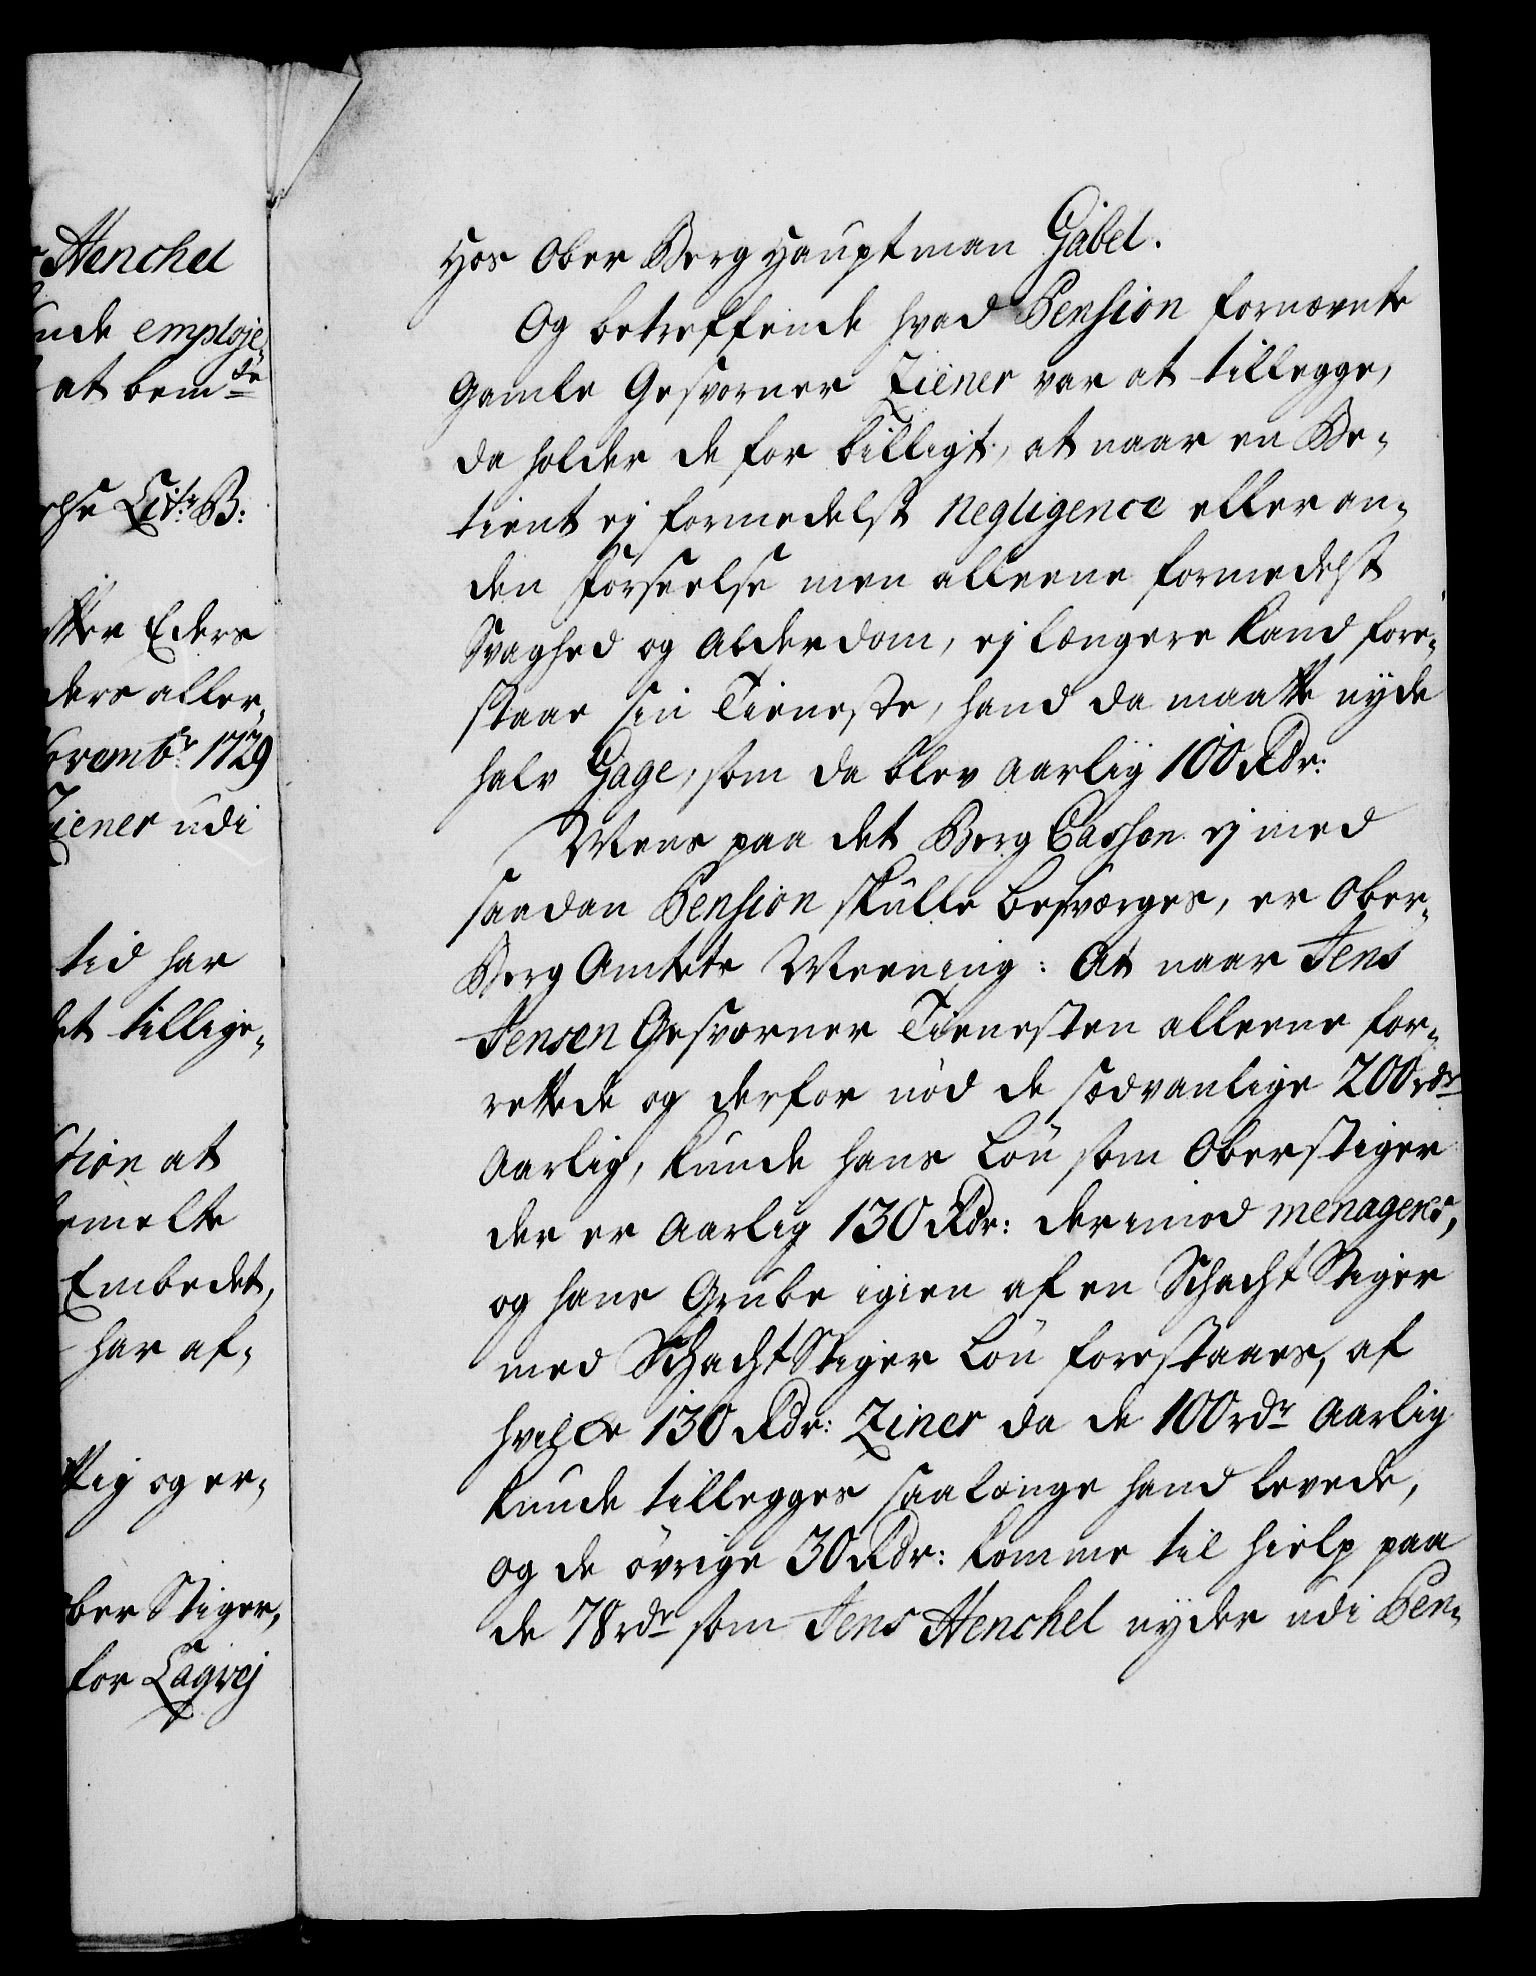 Henchel
nde employe,
at bem.te
Lit: B:
Eders
ders aller,
Novembr: 1729
Ziener udi
tid har
et tillige,
tion at
bemelte
Embedet,
har af,
tig og er,
ber Stiger,
for Lagvej
hos Ober Berg Hauptman Gabel.
Og betreffende hvad Pension fornævnte
Gamle Gesvorner Ziener var at tillegge,
da holder de for billigt, at naar en Be,
tient ej formedelst Negligence eller an,
den Forseelse men alleene formedelst
Svaghed og Alderdom, ej længere kand fore,
staae sin Tieneste, hand da maatte nyde
halv Gage, som da blev aarlig 100 Rdr:
Mens paa det Berg Cassen ej med
saadan Pension skulle besværges, er Ober,
Berg Amtets Meening: At naar Jens
Jensen Gesvorner Tienesten alleene for,
rettede og derfor nød de sædvanlige 200 rdr
Aarlig, kunde hans Løn som Oberstiger
der er Aarlig 130 Rdr: derimod menageres,
og hans Grube igien af en Schacht Stiger
med Schacht Stiger Løn forestaaes, af
hvilcke 130 Rdr: Ziner da de 100 rdr Aarlig
kunde tillegges saalænge hand levede,
og de øvrige 30 Rdr: komme til hielp paa
de 78 rdr som Jens Henchel nyder udi Pen,